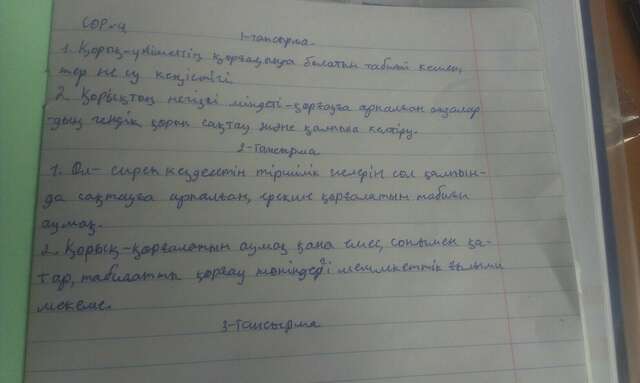 СОР-4
1-тапсырма.
1. Қорық-үкіметтің қорғауында болатын табиғи кешен,
жер не су кеңістігі.
2. Қорықтың негізгі міндеті-қорғауға арналған ағзалар-
дың гендік қорын сақтау және қалпына келтіру.
2-Тапсырма
1. Ол- сирек кездесетін тіршілік иелерін сол қалпын-
да сақтауға арналған, ерекше қорғалатын табиғи
аумақ.
2. Қорық-қорғалатын аумақ қана емес, сонымен қа-
тар, табиғатты қорғау жөніндегі мемлекеттік ғылыми
мекеме.
3-Тапсырма